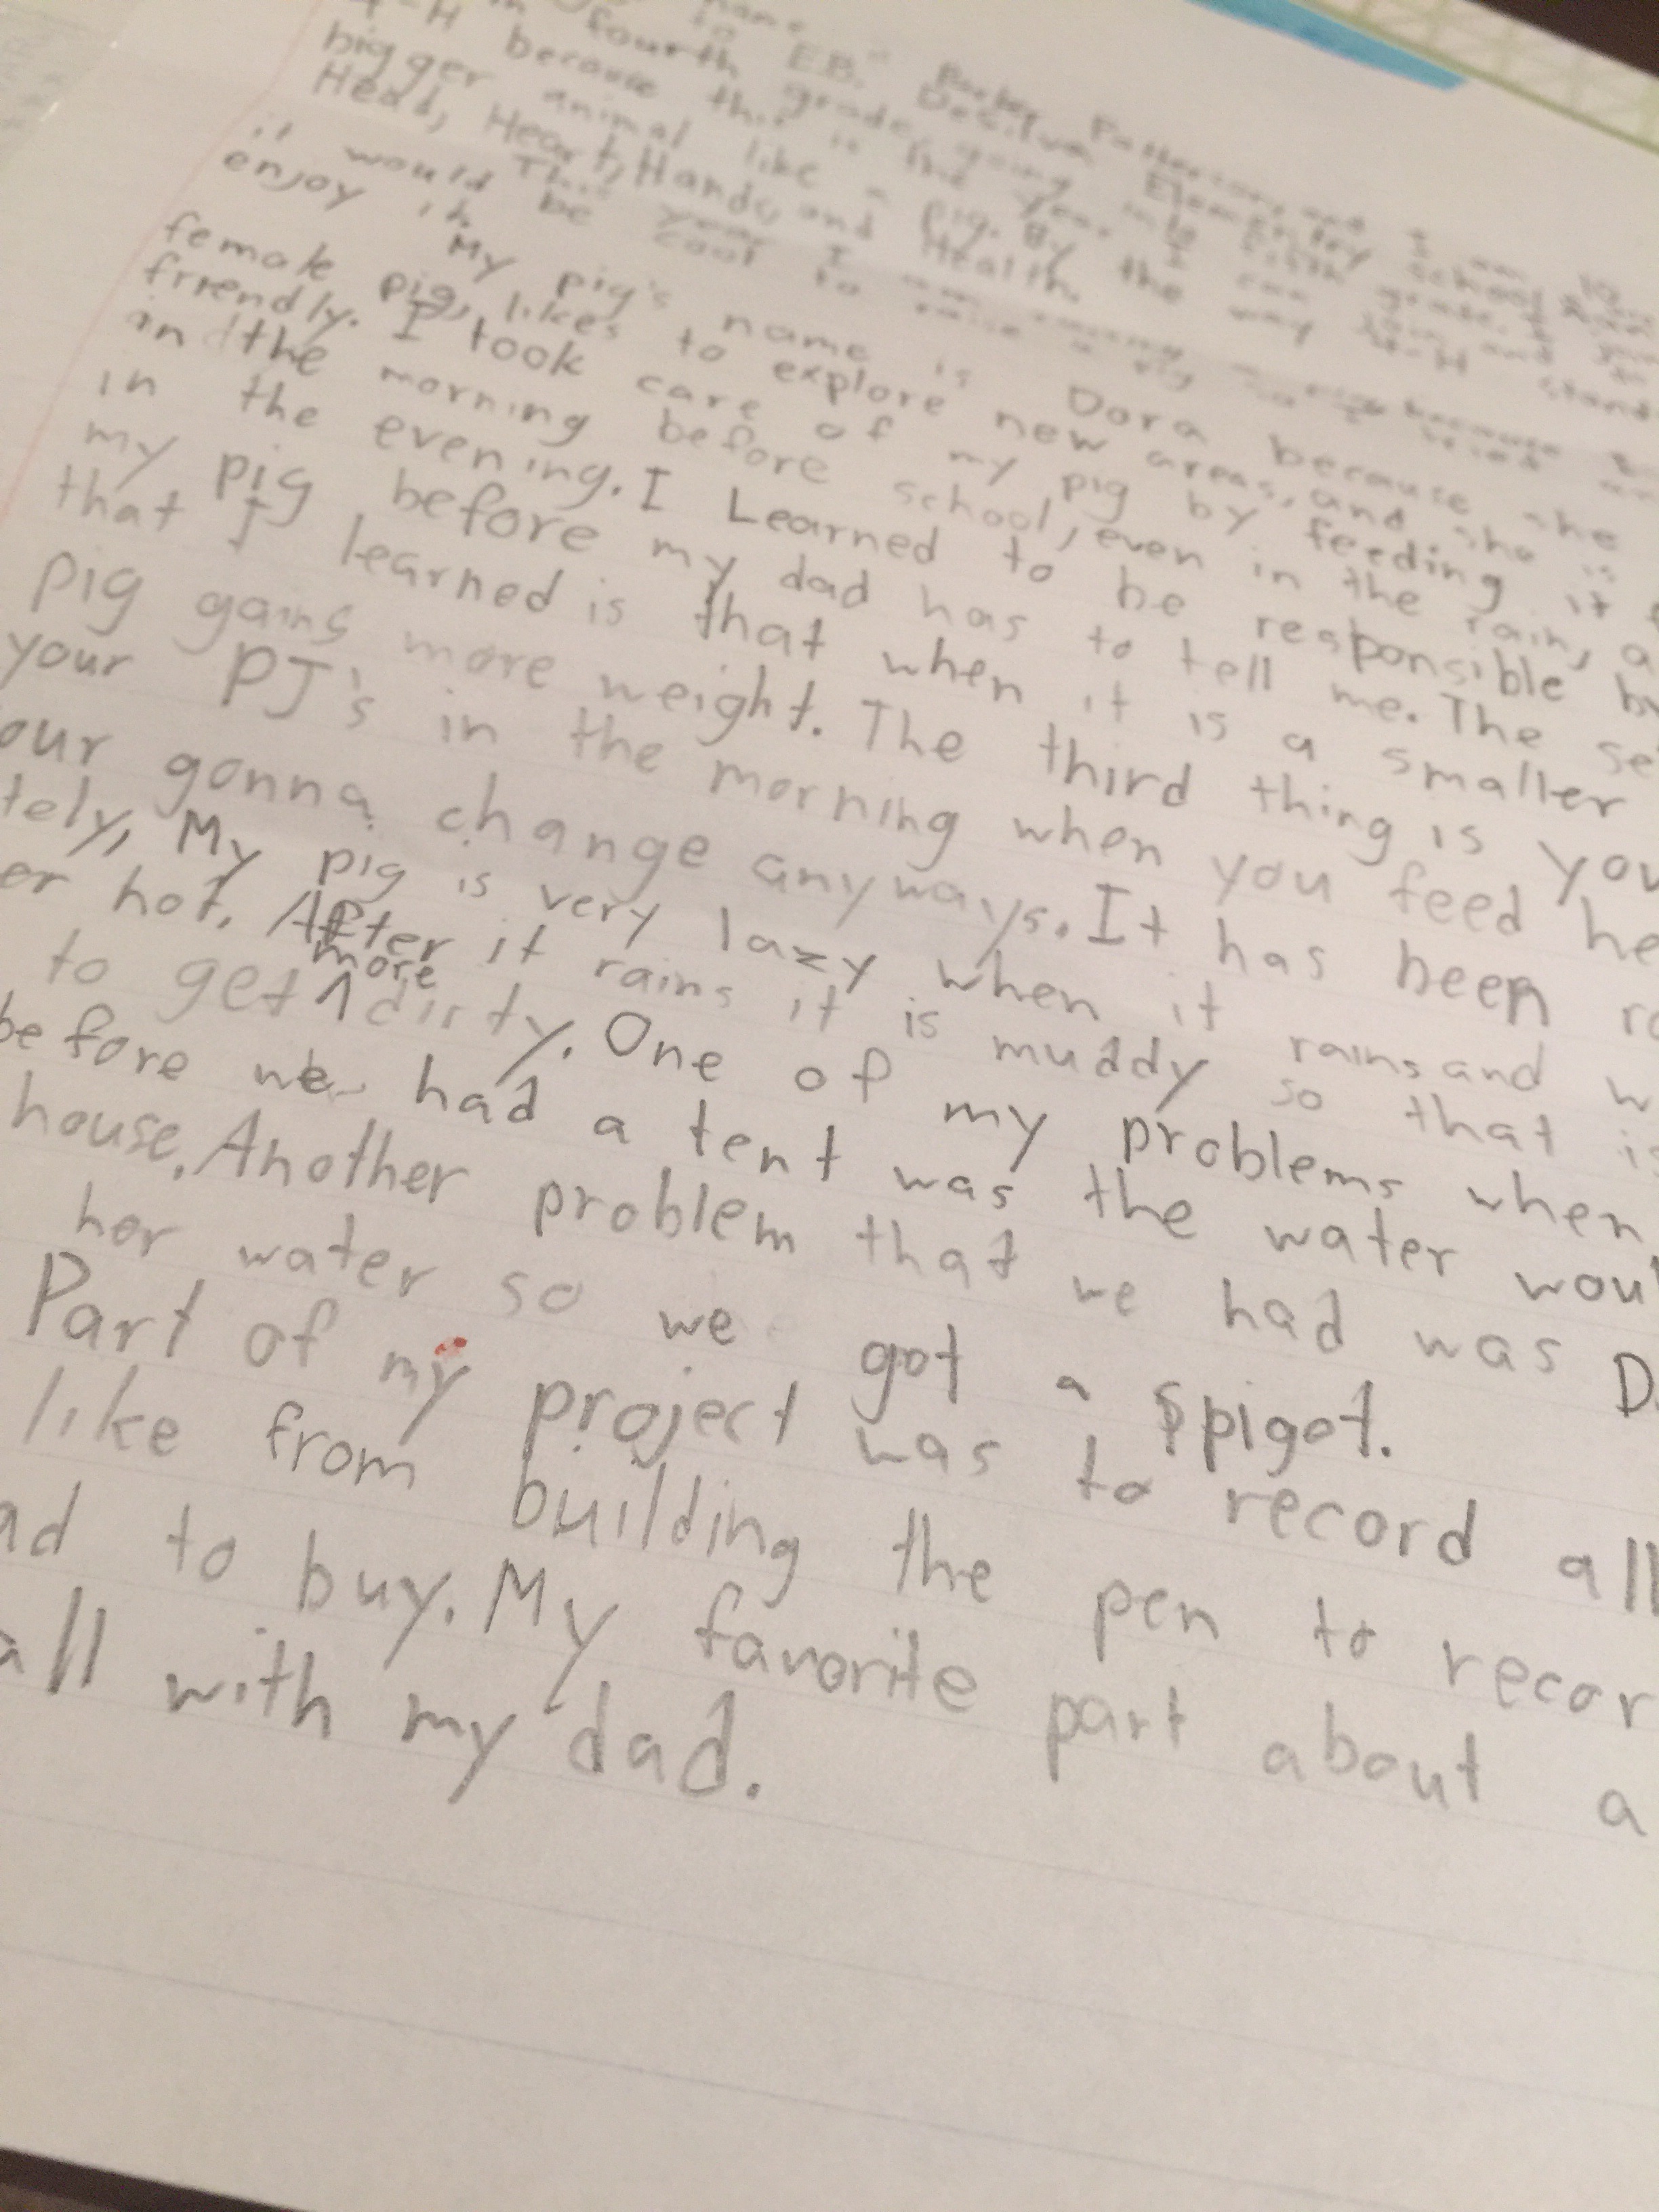 name Parker Patterson, and I am 10
to E.B. Desilva Elementary School
in fourth grade, going into fifth grade. I
4-H because this is the year I can join and
bigger animal like a pig. By the way 4-H stand
Head, Heart, Hands, and Health.
This year I am raising a pig because
it would be cool to raise a pig
enjoy it.
My pig's name is Dora because she
female pig, likes to explore new areas, and she is
friendly. I took care of my pig by feeding it
in the morning before school, even in the rain, a
in the evening. I Learned to be responsible b
my pig before my dad has to tell me. The se
that I learned is that when it is a smaller
pig gains more weight. The third thing is you
your PJ's in the morning when you feed he
our gonna change anyways. It has been ra
tely, My pig is very lazy when it rains and w
er hot. After it rains it is muddy so that is
to get ^more dirty. One of my problems when
before we had a tent was the water woul
house. Another problem that we had was D
her water so we got a spigot.
Part of my project was to record all
like from building the pen to recor
ad to buy. My favorite part about a
all with my dad.